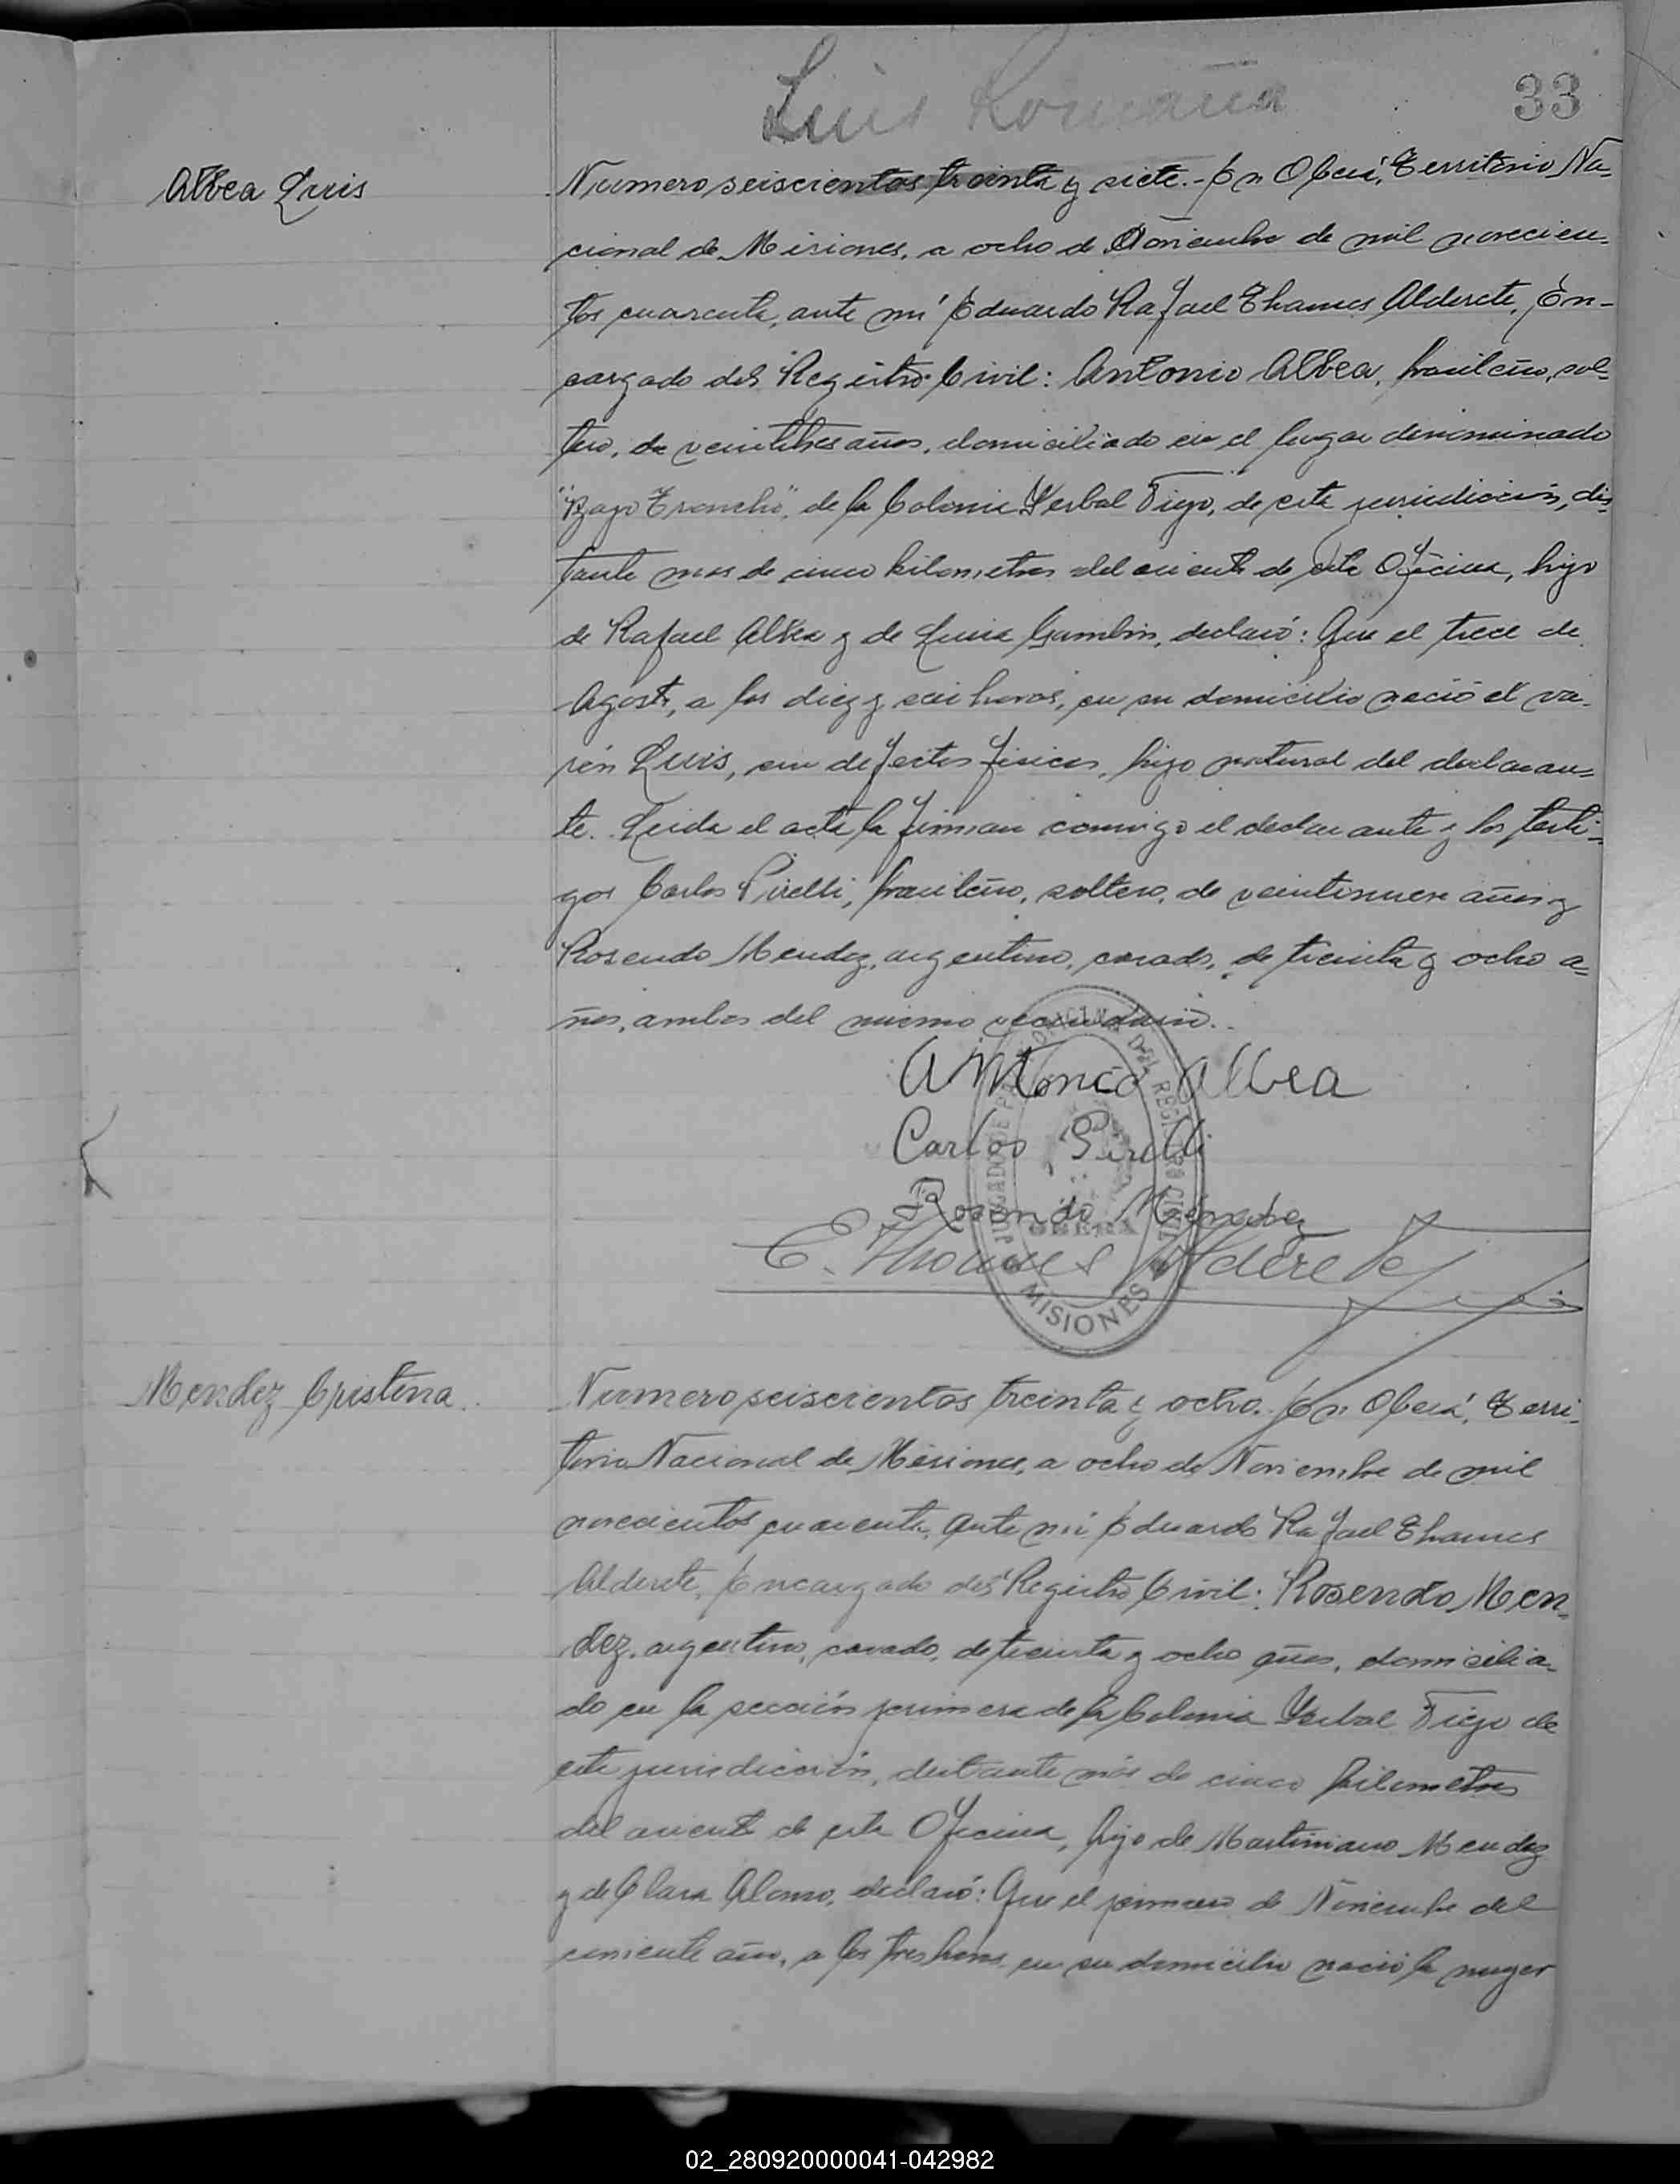 Luis Romaña
33
Albea Luis
Numero seiscientos treinta y siete.- En Oberá, Territorio Na-
cional de Misiones, a ocho de Noviembre de mil novecien-
tos cuarenta, ante mí Eduardo Rafael Thames Alderete, En-
cargado del Registro Civil: Antonio Albea, brasileño, sol-
tero, de veintitres años, domiciliado en el lugar denominado
"Bajo Troncho", de la Colonia Yerbal Viejo, de esta jurisdicción, dis-
tante mas de cinco kilometros del asiento de esta Oficina, hijo
de Rafael Albea y de Luisa Gambin, declaró: Que el trece de
Agosto, a las diez y seis horas, en su domicilio nació el va-
rón Luis, sin defectos fisicos, hijo natural del declaran-
te. Leida el acta la firman conmigo el declarante y los testi-
gos Carlos Pirelli, brasileño, soltero, de veintinueve años y
Rosendo Mendez, argentino, casado, de treinta y ocho a-
ños, ambos del mismo vecindario.
Antonio Albea
Carlos Pirelli
Rosendo Mendez
E. Thames Alderete
JUZGADO DE PAZ OFICINA DEL REGISTRO CIVIL
OBERA
MISIONES
Mendez Cristina
Numero seiscientos treinta y ocho. En Oberá, Terri-
torio Nacional de Misiones, a ocho de Noviembre de mil
novecientos cuarenta, ante mí Eduardo Rafael Thames
Alderete, Encargado del Registro Civil: Rosendo Men-
dez, argentino, casado, de treinta y ocho años, domicilia-
do en la sección primera de la Colonia Yerbal Viejo de
esta jurisdicción, distante más de cinco kilometros
del asiento de esta Oficina, hijo de Martiniano Mendez
y de Clara Alonso, declaró: Que el primero de Noviembre del
corriente año, a las tres horas, en su domicilio nació la mujer
02_280920000041-042982